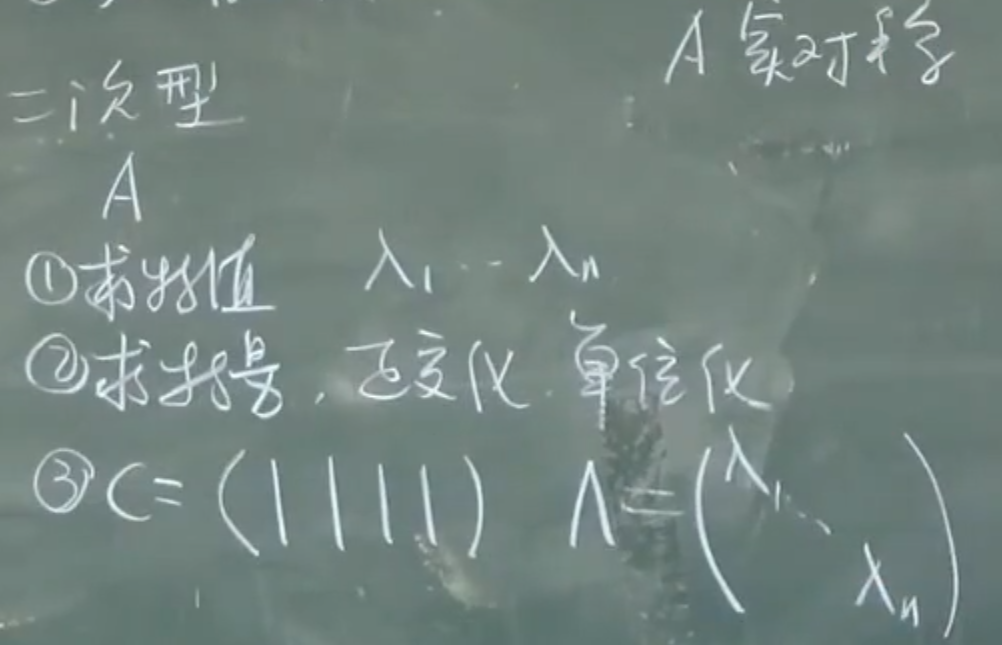 A 实对称
二次型
A
①求特值 λ₁ … λₙ
②求特量.正交化.单位化
③C=(| | | |) Λ=(λ₁ ⋱ λₙ)